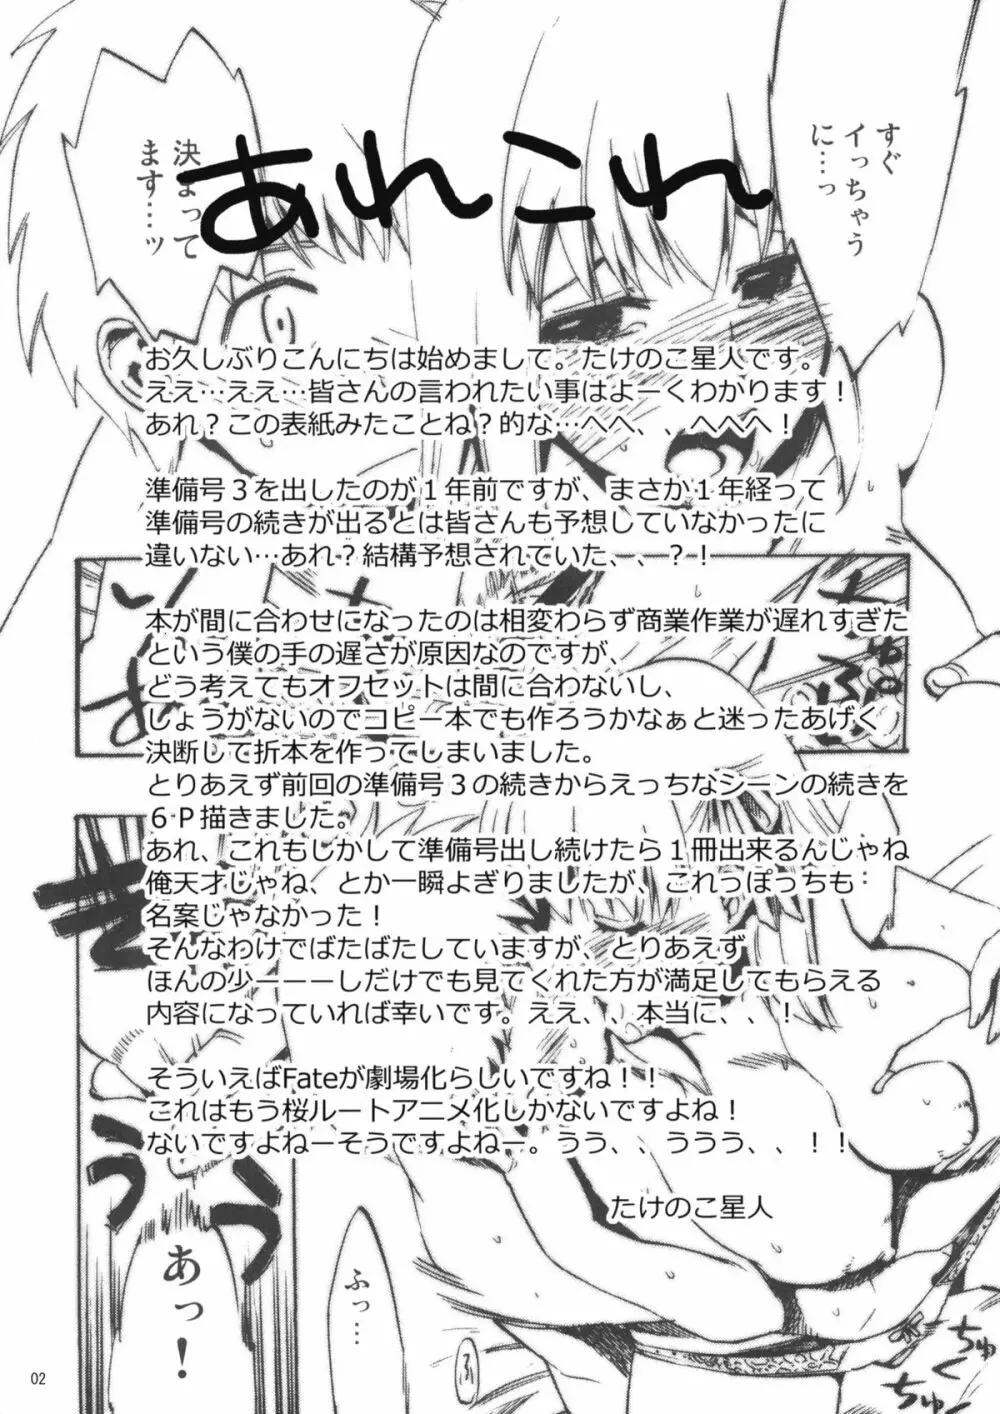 あれこれ
すぐ
イっちゃう
に…っ
決まって
ます…ッ
お久しぶりこんにちは始めまして。たけのこ星人です。
ええ…ええ…皆さんの言われたい事はよーくわかります！
あれ？この表紙みたことね？的な…へへ、、へへへ！
準備号３を出したのが１年前ですが、まさか１年経って
準備号の続きが出るとは皆さんも予想していなかったに
違いない…あれ？結構予想されていた、、、？！
本が間に合わせになったのは相変わらず商業作業が遅れすぎた
という僕の手の遅さが原因なのですが、
どう考えてもオフセットは間に合わないし、
しょうがないのでコピー本でも作ろうかなぁと迷ったあげく
決断して折本を作ってしまいました。
とりあえず前回の準備号３の続きからえっちなシーンの続きを
６Ｐ描きました。
あれ、これもしかして準備号出し続けたら１冊出来るんじゃね
俺天才じゃね、とか一瞬よぎりましたが、これっぽっちも
名案じゃなかった！
そんなわけでばたばたしていますが、とりあえず
ほんの少ーーーしだけでも見てくれた方が満足してもらえる
内容になっていれば幸いです。ええ、、本当に、、！
そういえばFateが劇場化らしいですね！！
これはもう桜ルートアニメ化しかないですよね！
ないですよねーそうですよねー。うう、、ううう、、！！
たけのこ星人
あっ！
ふっ…
ちゅく
ちゅくっ
02